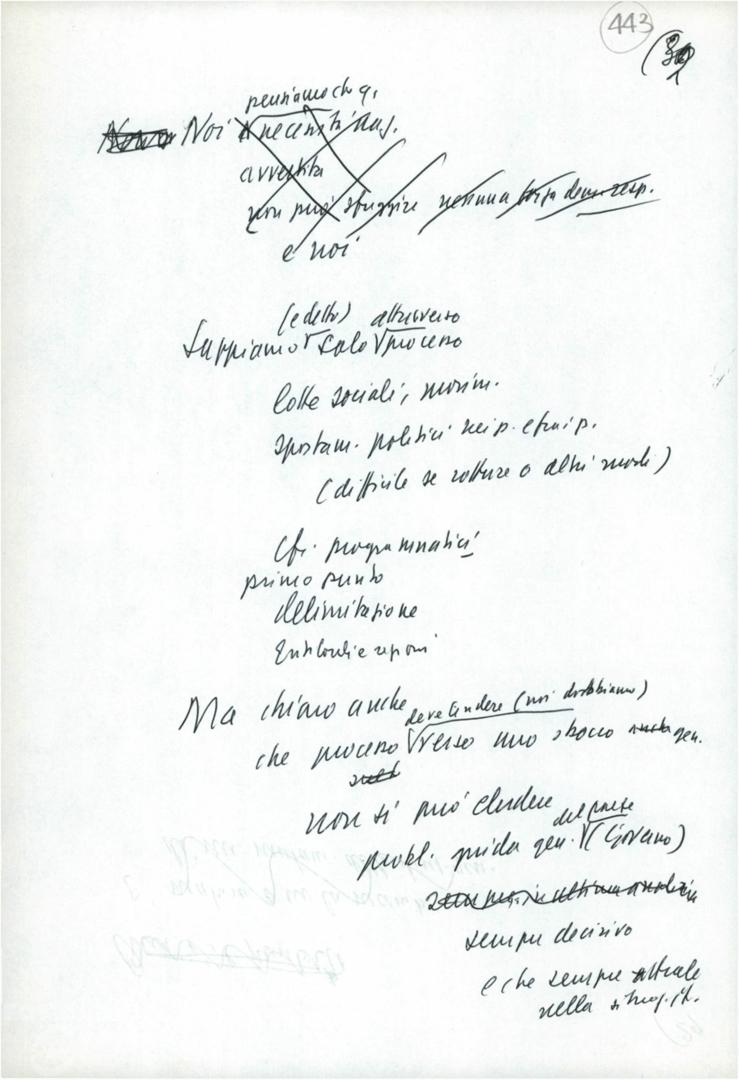 443
pensiamo che q.
Noi necessità ang.
avvertita
non può sfuggire nessuna forza dem. resp.
e noi
(e detto) attraverso
Sappiamo solo processo
lotte sociali, movim.
spostam. politici nei p. e fra i p.
(difficile se rotture o altri modi)
Cfr. programmatici
primo punto
delimitazione
Enti locali e regioni
Ma chiaro anche
deve tendere (noi dobbiamo)
che processo verso uno sbocco gen.
non si può eludere
del paese
probl. guida gen. (Governo)
sempre decisivo
e che sempre attuale
nella situaz. it.